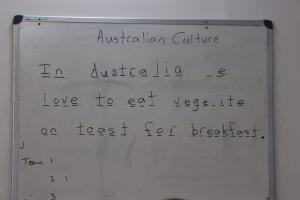 Australian Culture
In Australia _e
love to eat vege_ite
on toast for breakfast.
Team 1
2 1
3